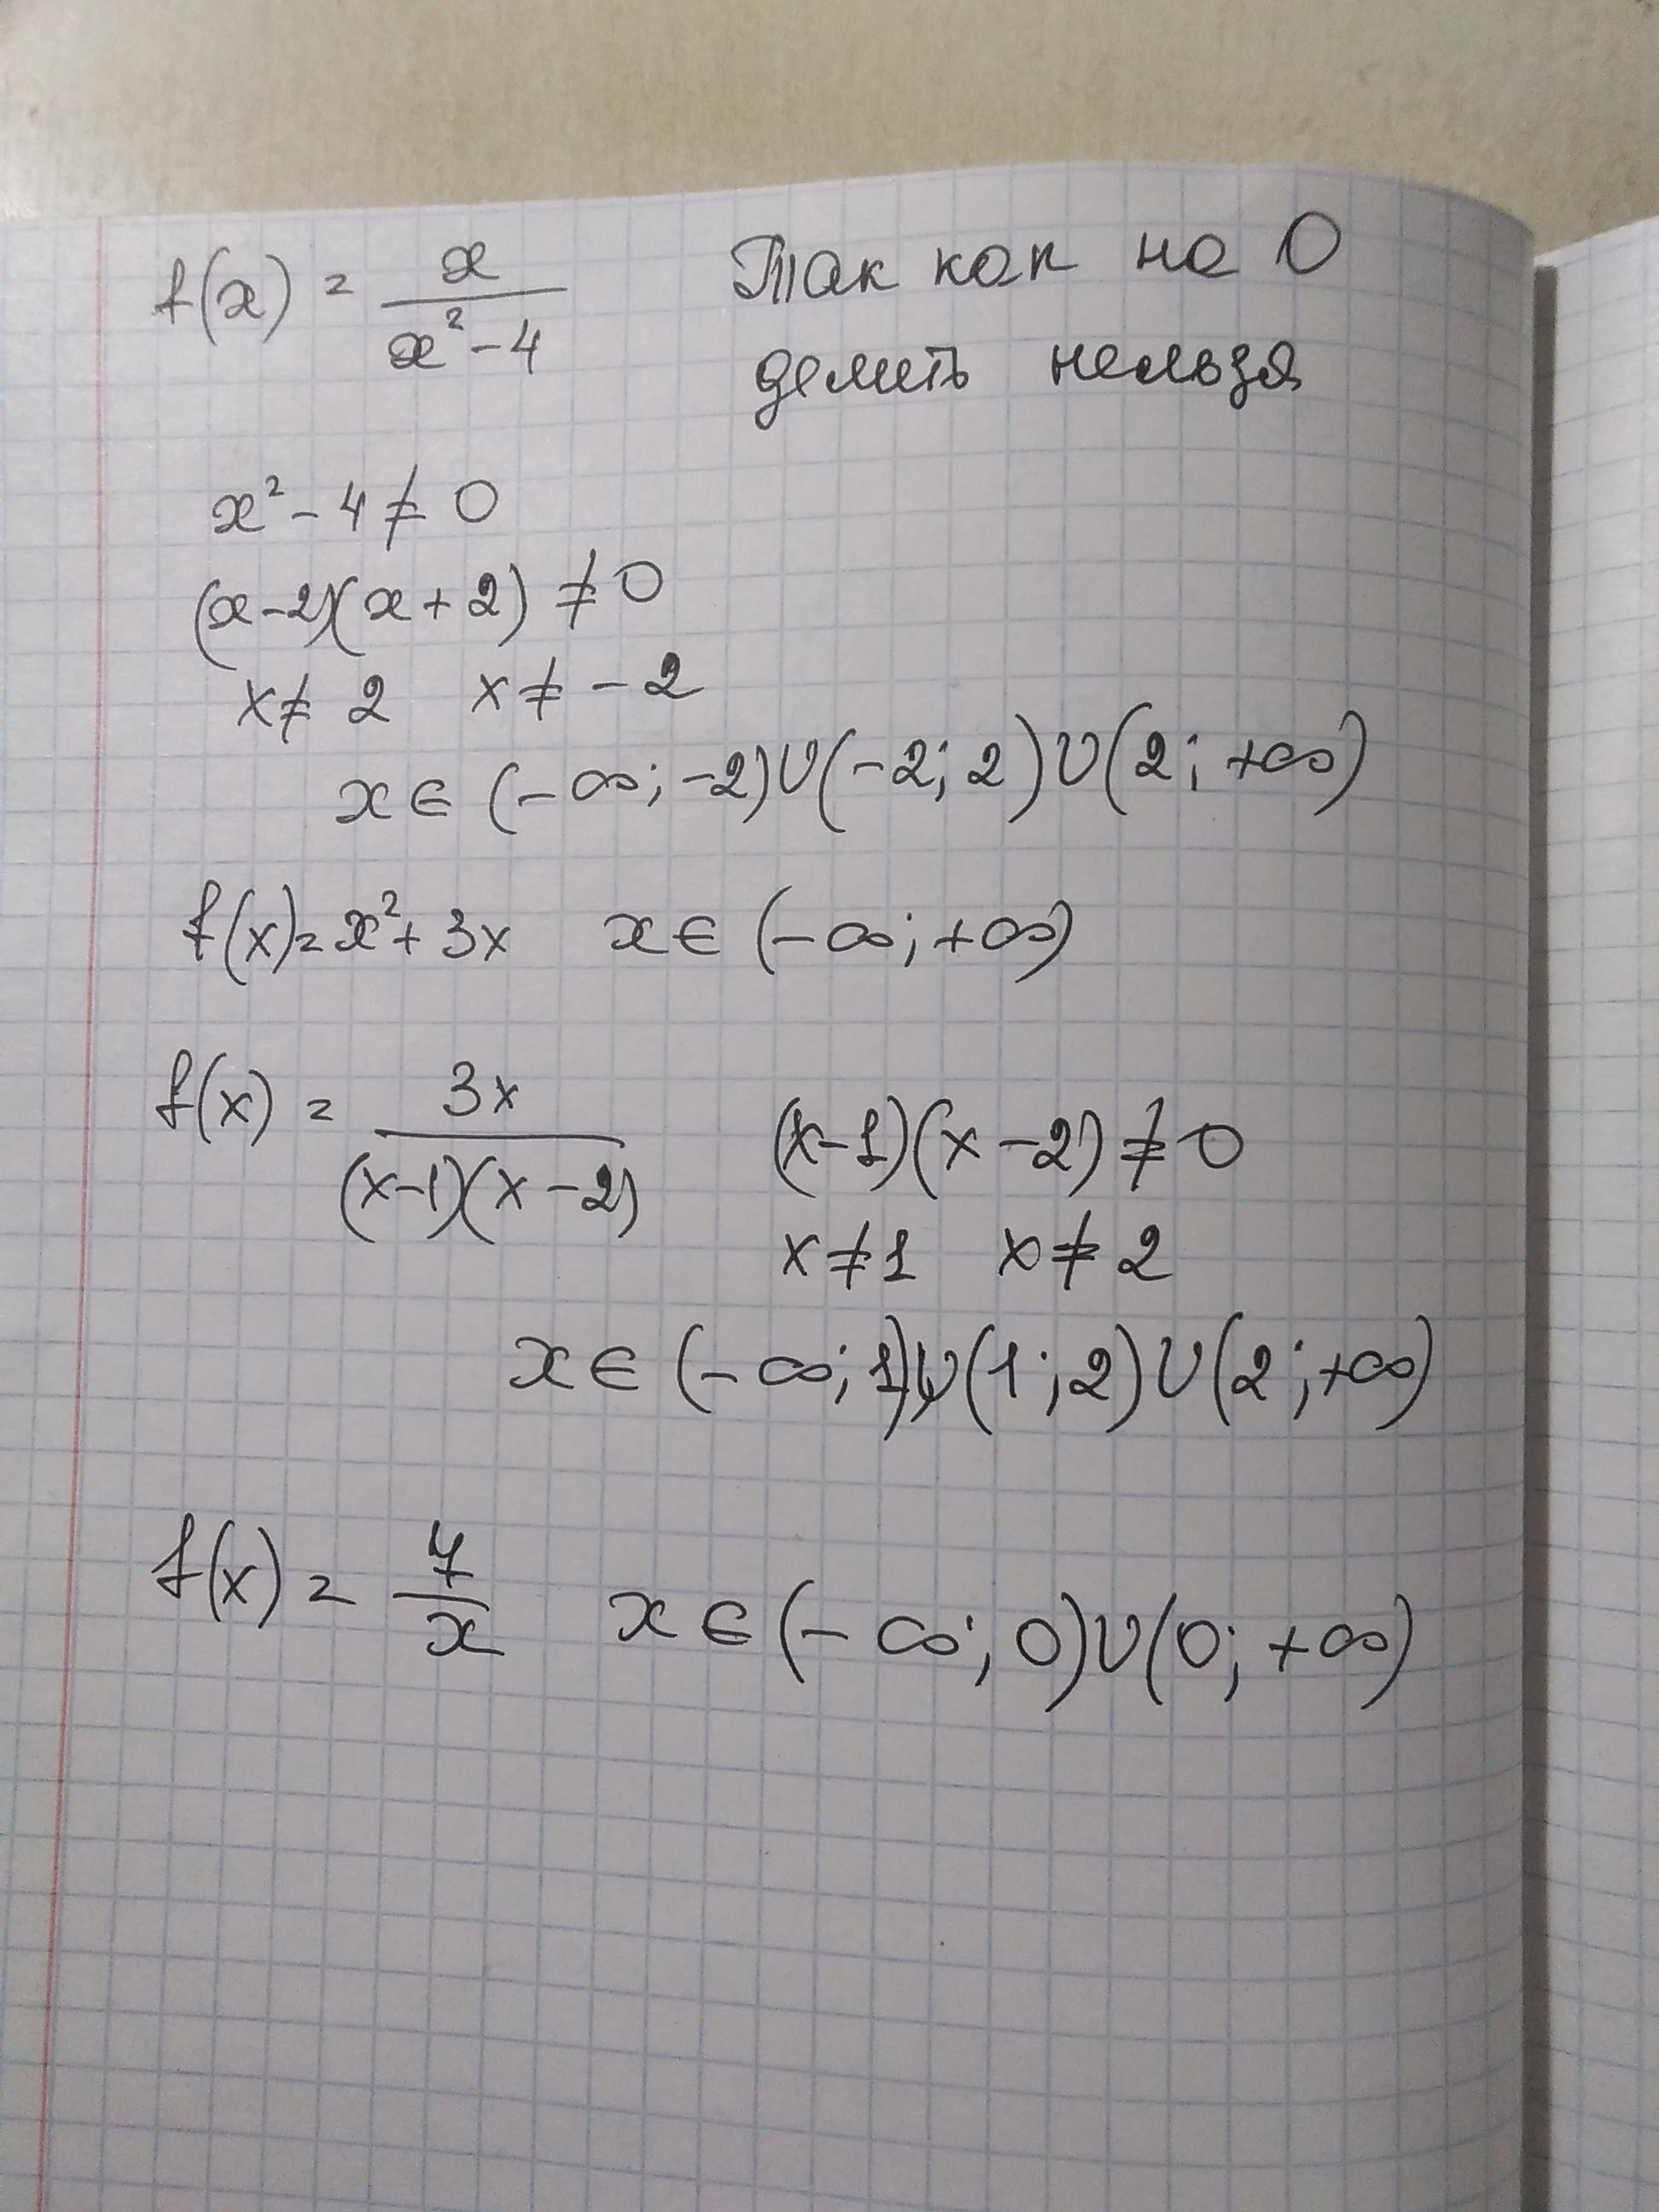 f(x) = x / (x² - 4) Так как на 0
делить нельзя
x² - 4 ≠ 0
(x-2)(x+2) ≠ 0
x ≠ 2 x ≠ -2
x ∈ (-∞; -2) ∪ (-2; 2) ∪ (2; +∞)
f(x) = x² + 3x x ∈ (-∞; +∞)
f(x) = 3x / ((x-1)(x-2)) (x-1)(x-2) ≠ 0
x ≠ 1 x ≠ 2
x ∈ (-∞; 1) ∪ (1; 2) ∪ (2; +∞)
f(x) = 7 / x x ∈ (-∞; 0) ∪ (0; +∞)